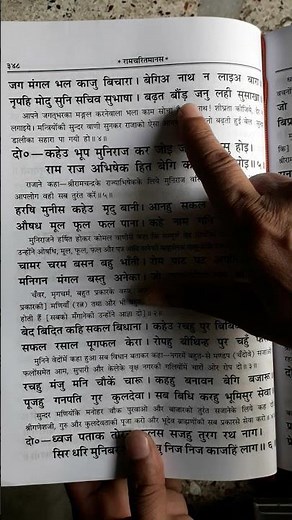 ३४८
* रामचरितमानस *
जग मंगल भल काजु बिचारा। बेगिअ नाथ न लाइअ बारा
नृपहि मोदु सुनि सचिव सुभाषा। बढ़त बौंड़ जनु लही सुसाखा
आपने जगत्भरका मङ्गल करनेवाला भला काम सोचा
नाथ! शीघ्रता कीजिये,
लगाइये। मन्त्रियोंकी सुन्दर वाणी सुनकर राजाको ऐसा
बढ़ती हुई बेल
डालीका सहारा पा गयी हो॥ ४॥
दो०— कहेउ भूप मुनिराज कर जोइ
होइ।
राम राज अभिषेक हित बेगि
राजाने कहा—श्रीरामचन्द्रके राज्याभिषेकके लिये मुनिराज
आपलोग वही सब तुरंत करें॥ ५॥
हरषि मुनीस कहेउ मृदु बानी। आनहु सकल
औषध मूल फूल फल पाना। कहे
मुनिराजने हर्षित होकर कोमल वाणीसे कहा
उन्होंने ओषधि, मूल, फूल, फल
चामर चरम बसन बहु भाँती। रोम पाट
मनिगन मंगल बस्तु अनेका।
चँवर, मृगचर्म, बहुत प्रकारके
कारकी] मणियाँ (रत्न) तथा और भी
होती हैं [सबको मँगानेकी आज्ञा दी]॥
बेद बिदित कहि सकल बिधाना। कहेउ रचहु पुर
सफल रसाल पूगफल केरा। रोपहु बीथिन्ह पुर चहुँ
मुनिने वेदोंमें कहा हुआ सब विधान बताकर कहा—नगरमें बहुत-से मण्डप (चँदोवे) सजाओ
फलोंसमेत आम, सुपारी और केलेके वृक्ष नगरकी गलियोंमें चारों ओर रोप दो॥ ३॥
रचहु मंजु मनि चौकें चारू। कहहु बनावन बेगि बजारू
पूजहु गनपति गुर कुलदेवा। सब बिधि करहु भूमिसुर सेवा
सुन्दर मणियोंके मनोहर चौक पुरवाओ और बाजारको तुरंत सजानेके लिये कह दो
श्रीगणेशजी, गुरु और कुलदेवताकी पूजा करो और भूदेव ब्राह्मणोंकी सब प्रकारसे सेवा करो॥
दो०— ध्वज पताक तोरन कलस सजहु तुरग रथ नाग।
सिर धरि मुनिबर
निज निज काजहिं लाग॥ ६